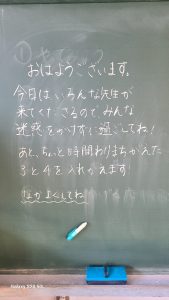 おはようございます。
今日はいろんな先生が
来てくださるので みんな
迷惑をかけずに過ごしてね!
あと、ちょっと時間わりまちがえた
3と4を入れかえます
なかよくしてね